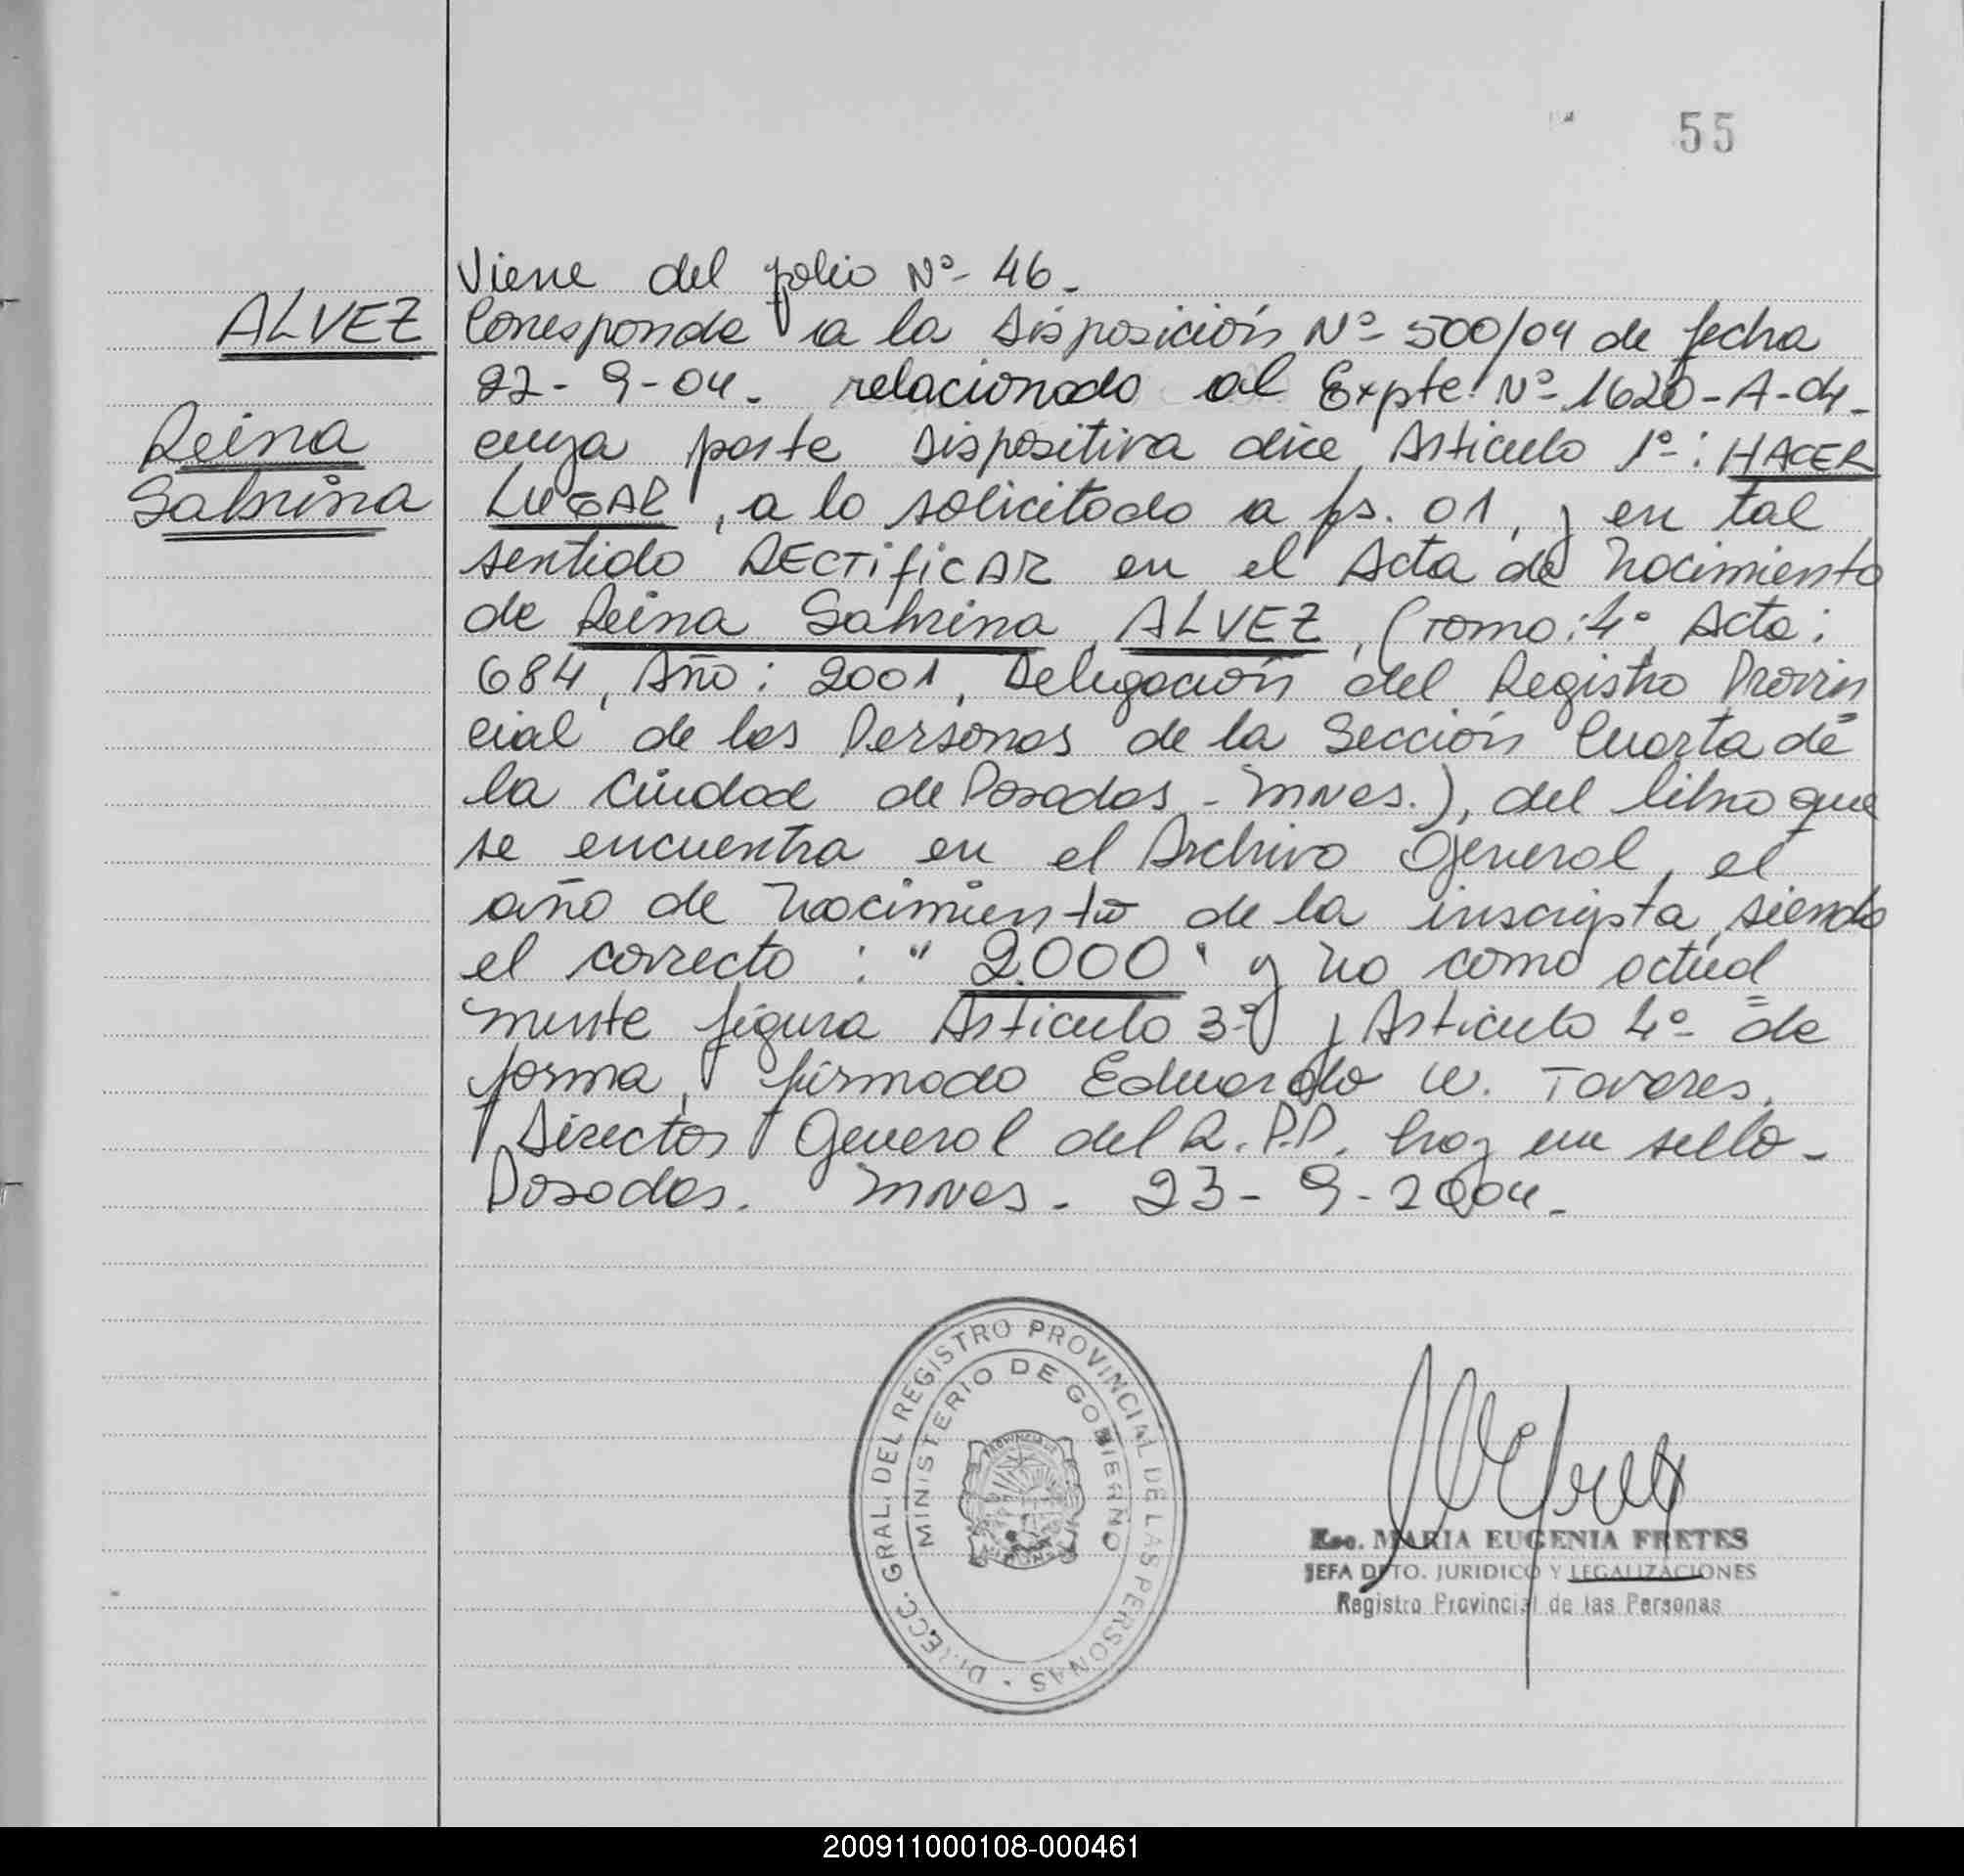 55
Viene del folio Nº 46.
ALVEZ
Corresponde a la Disposición Nº 500/04 de fecha
22-9-04. relacionado al Expte. Nº 1620-A-04.
Reina
cuya parte dispositiva dice, Articulo 1º: HACER
Sabrina
LUGAR, a lo solicitado a fs. 01, y en tal
sentido RECTIFICAR en el Acta de Nacimiento
de Reina Sabrina, ALVEZ, (Tomo: 4º Acta:
684, Año: 2001, Delegación del Registro Provin
cial de las Personas de la Sección Cuarta de
la Ciudad de Posadas - Mnes.), del libro que
se encuentra en el Archivo General, el
año de Nacimiento de la inscripta, siendo
el correcto: "2.000" y no como actual
mente figura Articulo 3º y Articulo 4º de
forma, firmado Eduardo W. Tavares.
Director General del R.P.P. hay un sello-
Posadas. Mnes. 23-9-2004.
DIRECC. GRAL. DEL REGISTRO PROVINCIAL DE LAS PERSONAS
MINISTERIO DE GOBIERNO
Esc. MARIA EUGENIA FRETES
JEFA DPTO. JURIDICO Y LEGALIZACIONES
Registro Provincial de las Personas
200911000108-000461